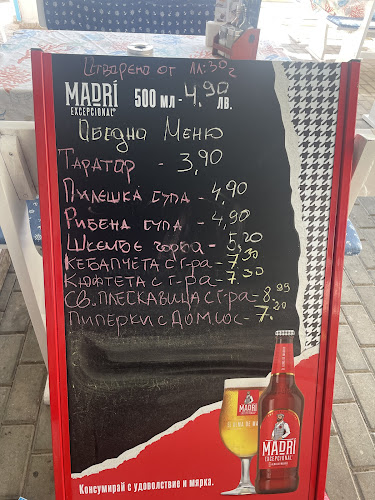 Отварено от 11:30 г
MADRÍ
EXCEPCIONAL
500 МЛ - 4,90 ЛВ.
Обедно Меню
Таратор - 3,90
Пилешка супа - 4,90
Рибена супа - 4,90
Шкембе чорба - 5,20
Кебапчета с г-ра - 7,30
Кюфтета с г-ра - 7.30
Св. плескавица с г-ра - 8.99
Пиперки с Дом сос - 7.20
MADRÍ
MADRÍ
EXCEPCIONAL
Консумирай с удоволствие и мярка.